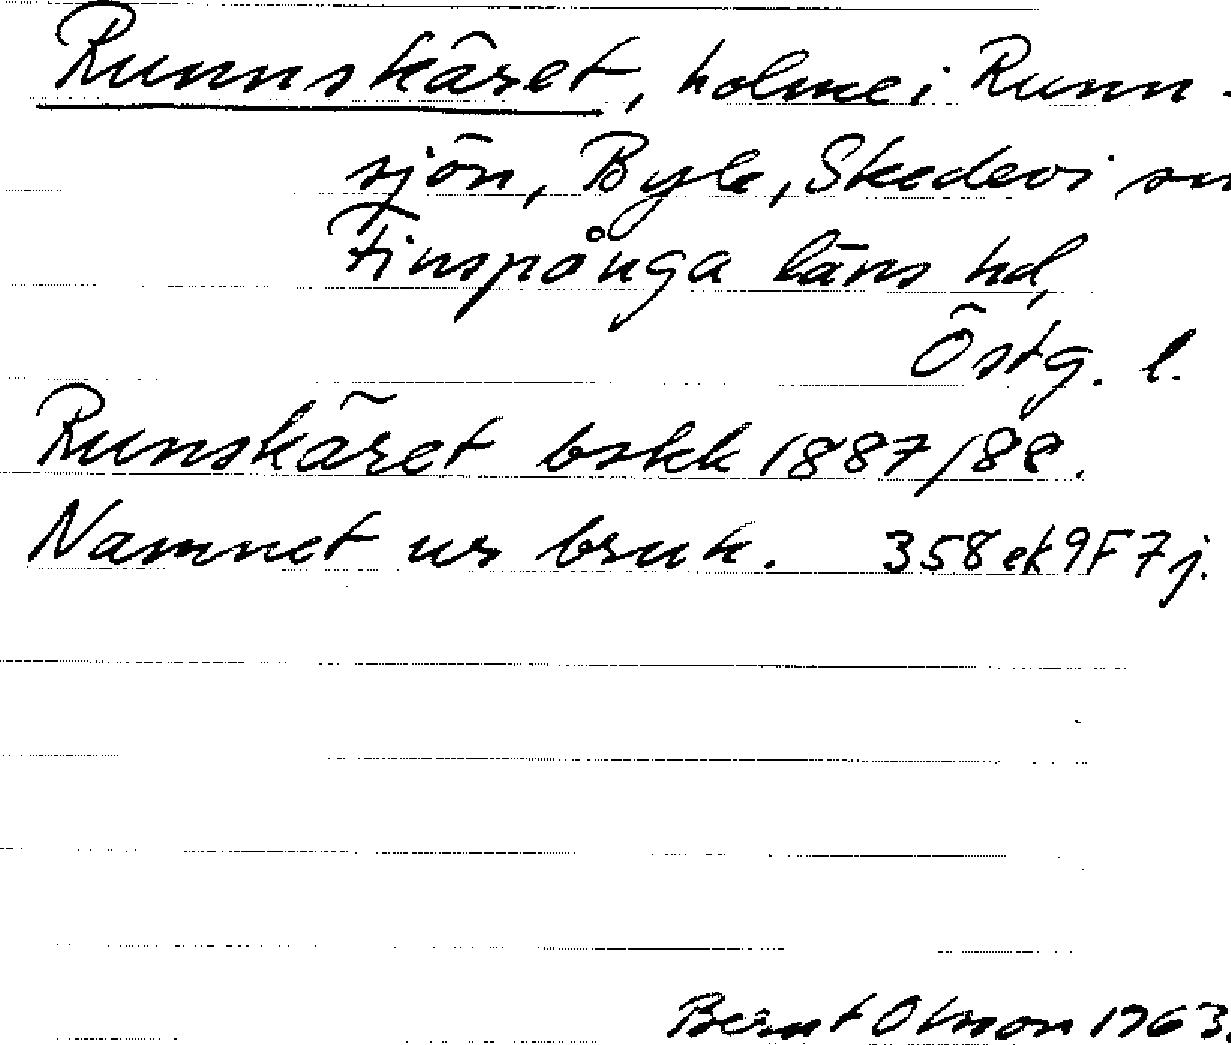 Runnskäret, holme i Runn-
sjön, Byle, Skedevi sn
Finspånga läns hd,
Östg. l.
Runskäret bskk 1887/88.
Namnet ur bruk. 358 ek 9F7j.
Bernt Olsson 1963.